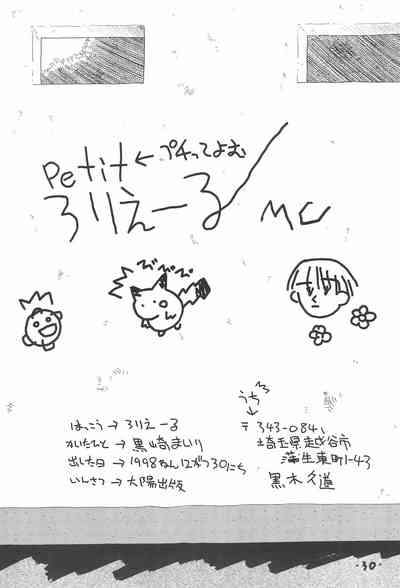 Petit ← プチってよむ
ろりえーる
MC
はっこう → ろりえーる
かいたひと → 黒崎まいり
出した日 → 1998ねん12がつ30にち
いんさつ → 太陽出版
うち
〒343-0841
埼玉県越谷市
蒲生東町1-43
黒木久道
・30・